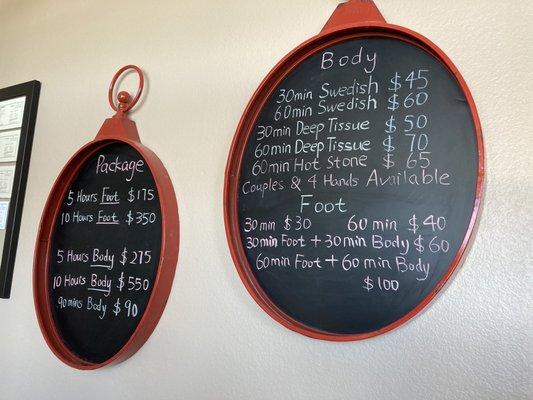 Package
5 Hours Foot $175
10 Hours Foot $350
5 Hours Body $275
10 Hours Body $550
90mins Body $90
Body
30min Swedish $45
60min Swedish $60
30min Deep Tissue $50
60min Deep Tissue $70
60min Hot Stone $65
Couples & 4 Hands Available
Foot
30min $30 60min $40
30min Foot + 30min Body $60
60min Foot + 60min Body
$100